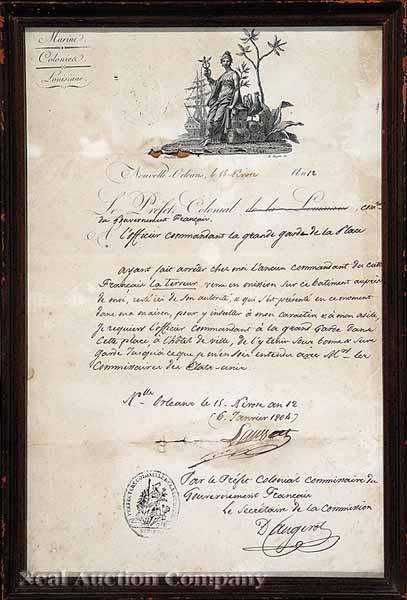 Marine
Colonies
Louisiane.
Nouvelle-Orléans, le 15 Nivose An 12
Le Préfet Colonial de la Louisiane, com.re
du Gouvernement Français.
A l'officier commandant la grande garde de la Place
ayant fait arrêter chez moi l'ancien commandant du cutter
Français la terreur venu en mission sur ce batiment auprès
de moi, resté ici de son autorité, & qui s'est présenté en ce moment
dans ma maison, pour y insulter à mon caractère & à mon asile,
Je requiers l'officier commandant à la grand Garde dans
cette place, à l'hôtel de ville, de l'y tenir sous bonne & sure
garde Jusqu'à ce que je m'en sois entendu avec M.rs les
Commissaires des Etats-unis
N.lle Orleans le 15 Nivose an 12
(6 Janvier 1804)
Laussat
Par le Préfet Colonial Commissaire du
Gouvernement Français
Le Secrétaire de la Commission
Daugerot
Neal Auction Company